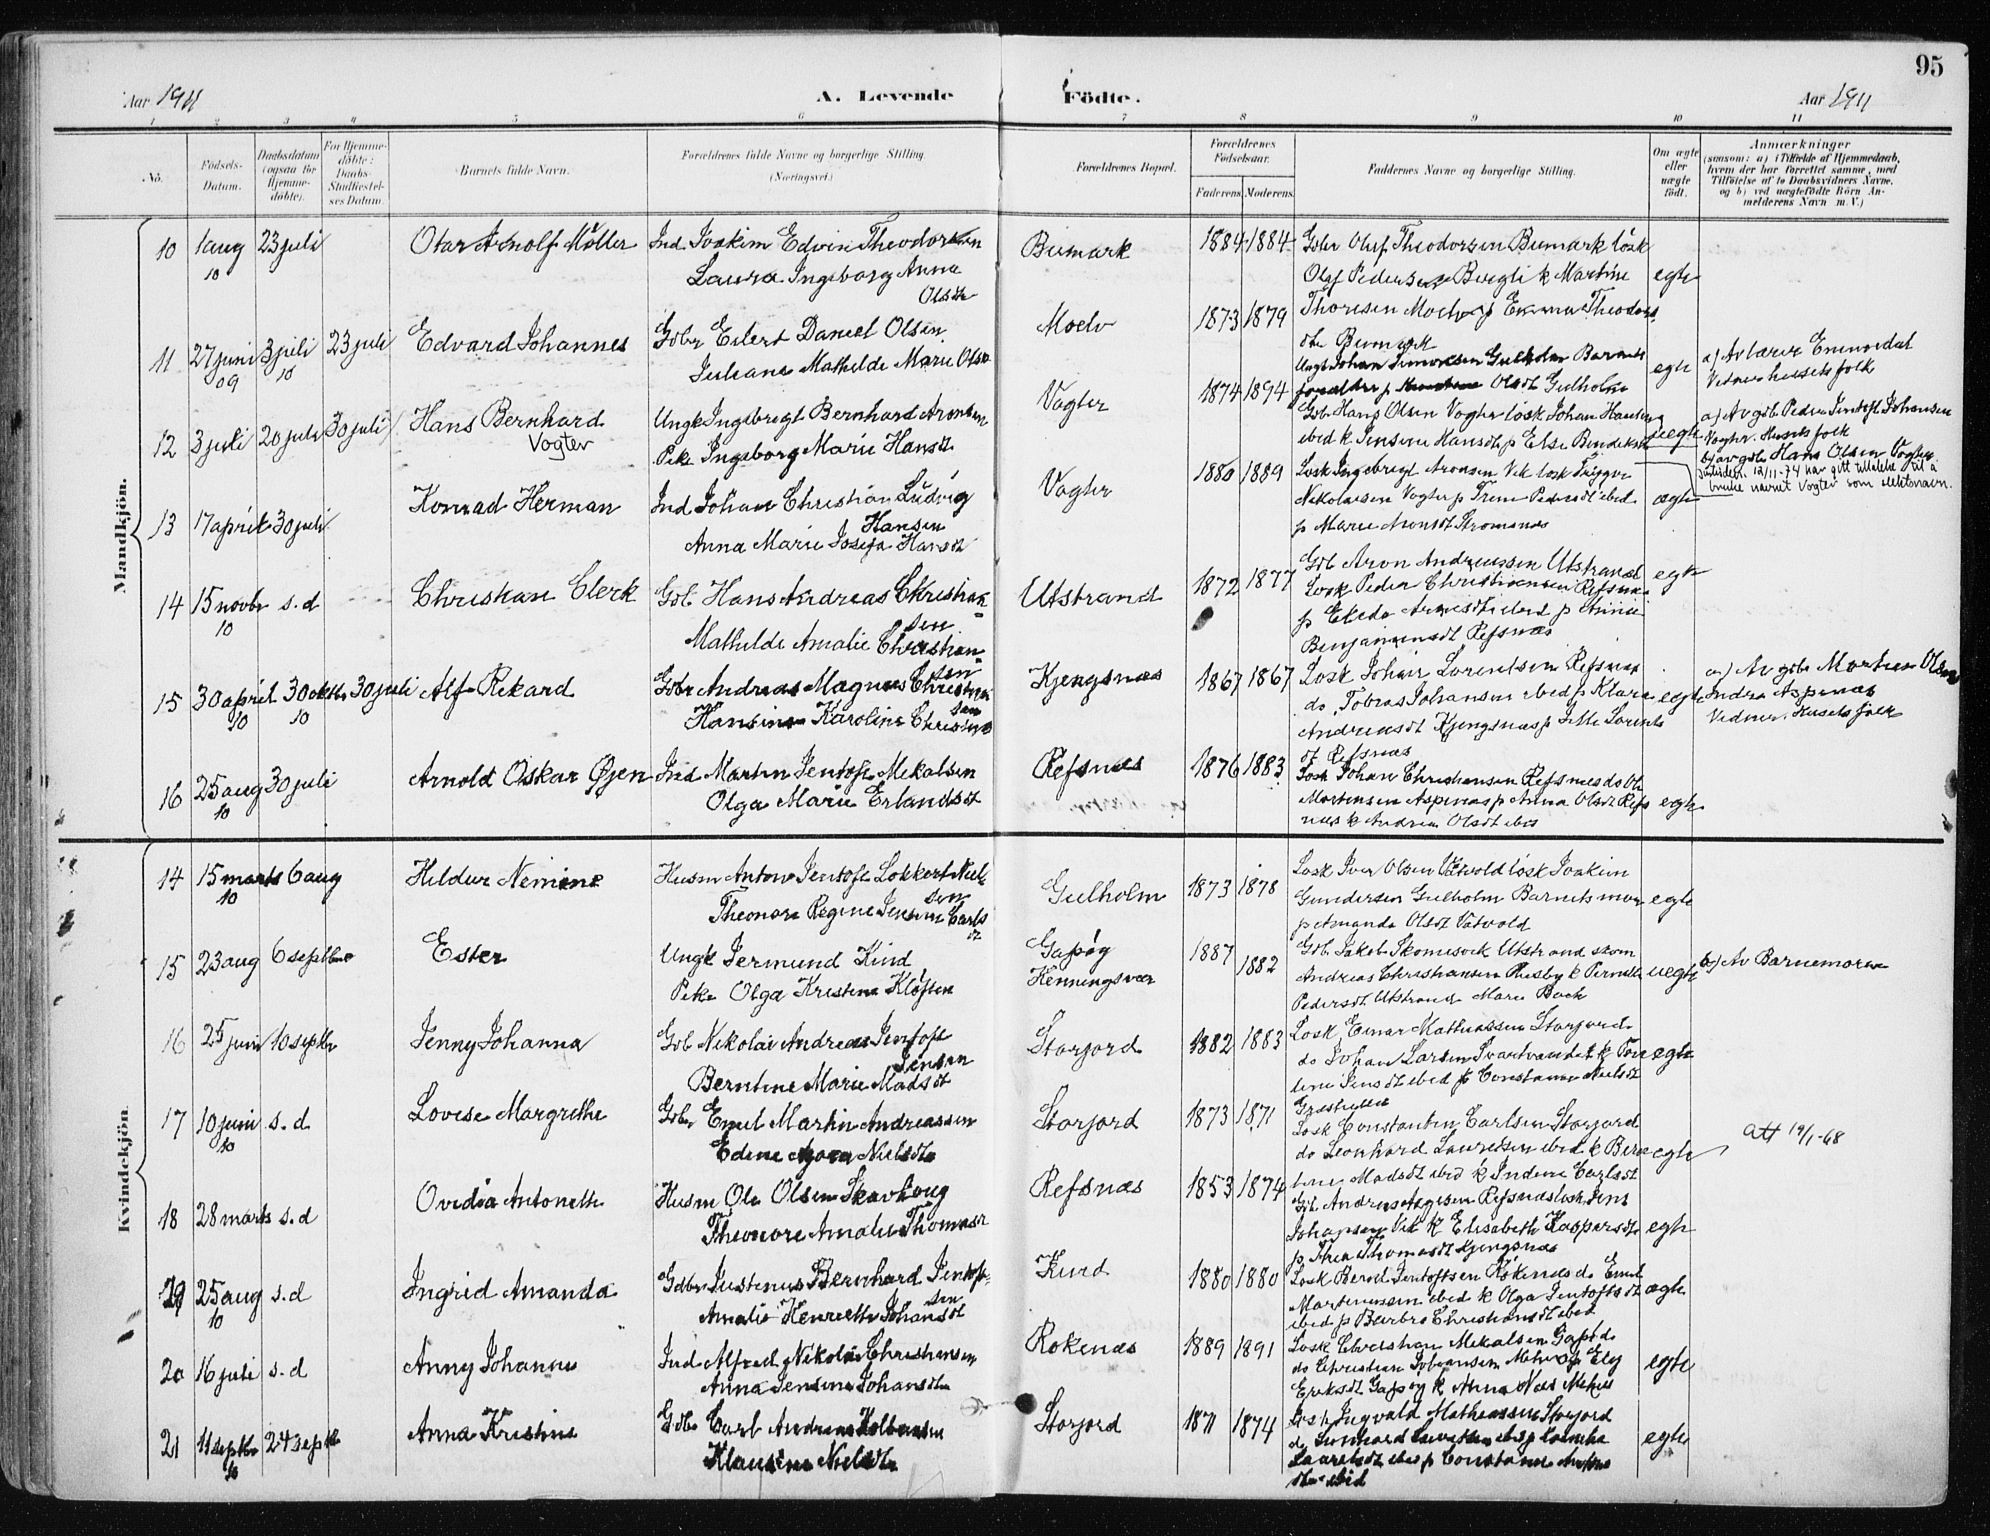 95
Aar 1911
A. Levende Födte.
Aar 1911
1 2 3 4 5 6 7 8 9 10 11
No.
Födsels-Datum.
Daabsdatum (ogsaa for Hjemme-döbte).
For Hjemme-döbte: Daabs-Stadfæstel-ses Datum.
Barnets fulde Navn.
Forældrenes fulde Navne og borgerlige Stilling. (Næringsvei.)
Forældrenes Bopæl.
Forældrenes Födselsaar.
Faderens. Moderens.
Faddernes Navne og borgerlige Stilling.
Om ægte eller uægte födt.
Anmærkninger
(saasom: a) i Tilfælde af Hjemmedaab, hvem der har forrettet samme, med Tilföielse af to Daabsvidners Navne, og b) ved uægtefödte Börn An-melderens Navn m. V.)
Mandkjön.
10 1 aug 10 23 juli Otar Arnolf Möller
Ind Joakim Edvin Theodorsen
Laura Ingeborg Anna
Olsdt
Bumark 1884 1884
Gbr Oluf Theodorsen Bumark løsk
Olaf Pedersen Bergli k Martine
Thoresen Moelv p Emma Theodors
dtr Bumark
egte
11 27 juni 09 3 juli 10 23 juli Edvard Johannes
Gbr Eilert Daniel Olsen
Juliane Mathilde Marie Olsd
Moelv 1873 1879
Ungk Johan Simonsen Gulholm Barnets
forældre p Olsdt Gulholm
egte
a) Av lærer Emmerdal
Vidner husets folk
12 3 juli 20 juli 30 juli Hans Bernhard
Vogter
Ungk Ingebregt Bernhard Aronsen
Pike Ingeborg Marie Hansdt
Vogter 1874 1894
Gbr Hans Olsen Vogter løsk Johan Hansen
ibed k Jensine Hansdt p Else Bendiksdt
uegte
a) Av gbr Peder Jentoft Johansen
Vogter. Husets folk
b) av gbr Hans Olsen Vogter
12/11-74 har gitt tillatelse til å
bruke navnet Vogter som slektsnavn.
13 17 april 30 juli Konrad Herman
Ind Johan Christian Ludvig
Hansen
Anna Marie Josefa Hansdt
Vogter 1880 1889
Løsk Ingebregt Aronsen Vik løsk Trygve
Nikolaisen Vogter p Trine Pedersdt ibed
p Marie Aronsdt Stromsnes
ægte
14 15 novbr 10 s.d Christian Clerk
Gbr Hans Andreas Christian-
sen
Mathilde Amalie Christian-
sen
Utstrand 1872 1877
Gbr Aron Andreassen Utstrand
Løsk Peder Christiansen Refsnes
p Elida Arnesdt ibed p Anna
Benjaminsdt Refsnæs
egte
15 30 april 10 30 oktbr 10 30 juli Alf Rikard
Gbr Andreas Magnus Christian
sen
Hansine Karoline Christians
Kjengsnæs 1867 1867
Løsk Johan Lorentsen Refsnæs
do Tobias Johansen ibed p Klara
Andreasdt Kjengsnæs p Jelle Lorents
dt Refsnæs
egte
a) Av gbr Morten Olsen
Indre Aspenæs
Vidner. Husets folk
16 25 aug 10 30 juli Arnold Oskar Øjen
Ind Martin Jentoft Mekalsen
Olga Marie Erlandsdt
Refsnæs 1876 1883
Løsk Johan Christiansen Refsnes do Ole
Mortensen Aspenæs p Anna Olsdt Refs
næs k Andrea Olsdt ibed
egte
Kvindekjön.
14 15 marts 10 6 aug Hildur Nemine
Husm Anton Jentoft Lokkert Niel-
sen
Theonora Regine Jensine Carls
dt
Gulholm 1873 1878
Løsk Iver Olsen Våtvold løsk Joakim
Gundersen Gulholm Barnets mor
p Amanda Olsdt Våtvold
egte
15 23 aug 6 septbr Ester
Ungk Jermund Kind
Pike Olga Kristine Kløften
Gapøg
Henningsvær
1887 1882
Gbr Jakob Skomesvik Utstrand skom
Andreas Christiansen Risby k Pernille
Pedersdt Utstrand Marie Bach
uegte
b) Av Barnemoren
16 25 juni 10 septbr Jenny Johanna
Gbr Nikolai Andreas Jentoft
Jensen
Berntine Marie Madsdt
Storjord 1882 1883
Løsk Einar Mathiassen Storjord
do Johan Larsen Svartvandet k Tom
line Jensdt ibed p Constanse Nielsdt
Græsholla
egte
17 10 juni 10 s.d Lovise Margrethe
Gbr Emil Martin Andreassen
Edine Nielsdtr
Storjord 1873 1871
Løsk Constantin Carlsen Storjord
do Leonhard Lauritsen ibed k Bern
tine Madsdt ibed k Indene Carlsdt
egte
Att 19/1-68
18 28 marts s.d Ovidia Antonette
Husm Ole Olsen Skavhoug
Theonore Amalie Thomasd
Refsnæs 1853 1874
Gbr Andreas Aagesen Refsnæs løsk Jens
Johansen Vik k Elisabeth Kaspersdt
p Thea Thomasdt Kjengsnæs
egte
19 25 aug 10 s.d Ingrid Amanda
Gdbr Justenus Bernhard Jentoft-
sen
Amalie Henriette Johansdt
Kurd 1880 1880
Løsk Bernt Jentoftsen Rokenæs do Emil
Martenussen ibed k Olga Jentoftsdt
ibed p Barbro Christiansdt ibed
ægte
20 16 juli s.d Anny Johanne
Ind Alfred Nikolai Christiansen
Anna Jensine Johansdtr
Rokenæs 1889 1891
Løsk Christian Mekalsen Gapødo
do Christian Johansen p Elg
Eriksdt Gapøg k Anna Næs
egte
21 11 septbr 10 24 septbr Anna Kristine
Gdbr Carl Andreas
Klausine Nielsdtr
Storjord 1871 1874
Løsk Ingvald Mathiassen Storjord
do Leonhard Lauritsen ibed p
Lauritsdt ibed p Constanse
dtr ibid
egte